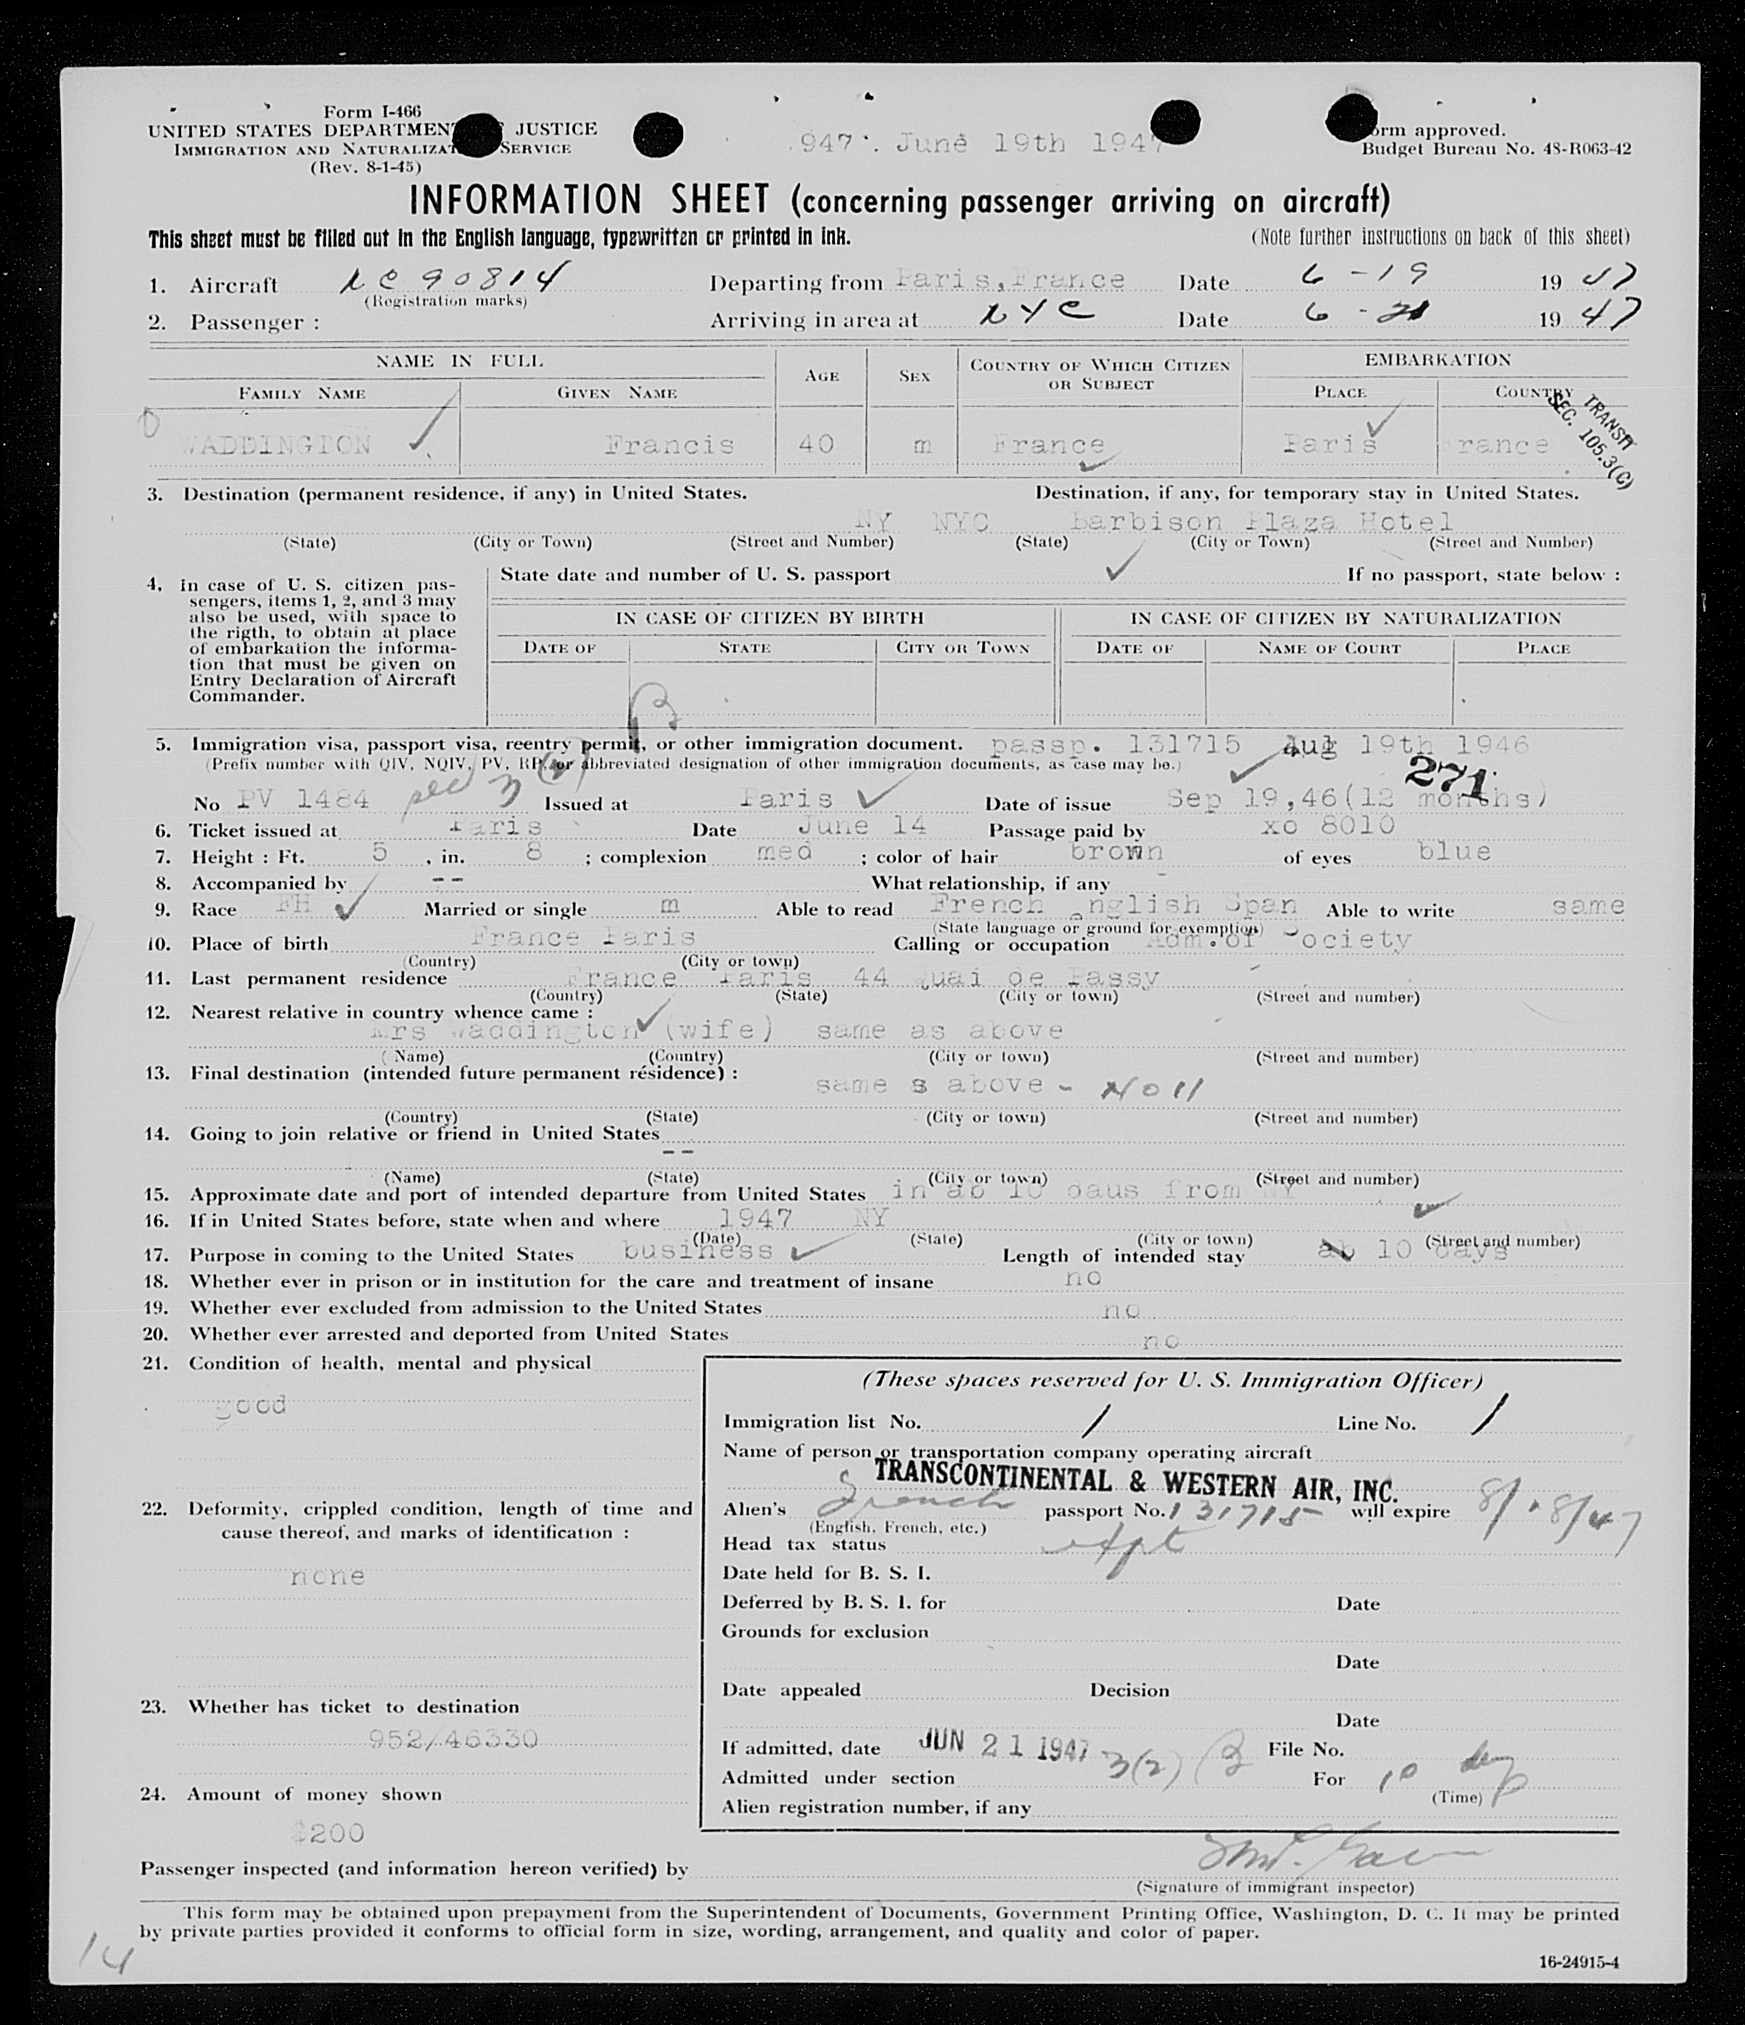 Form I-466
UNITED STATES DEPARTMENT JUSTICE
IMMIGRATION AND NATURALIZAT SERVICE
(Rev. 8-1-45)
947 . June 19th 1947
orm approved.
Budget Bureau No. 43-R063-42
INFORMATION SHEET (concerning passenger arriving on aircraft)
This sheet must be filled out in the English language, typewritten or printed in ink. (Note further instructions on back of this sheet)
1. Aircraft NC 90814 Departing from Paris, France Date 6-19 1947
(Registration marks)
2. Passenger : Arriving in area at NYC Date 6-21 1947
NAME IN FULL AGE SEX COUNTRY OF WHICH CITIZEN OR SUBJECT EMBARKATION
FAMILY NAME GIVEN NAME PLACE COUNTRY
TRANSIT
SEC. 105.3(C)
WADDINGTON Francis 40 m France Paris rance
3. Destination (permanent residence, if any) in United States. Destination, if any, for temporary stay in United States.
NY NYC Barbison Plaza Hotel
(State) (City or Town) (Street and Number) (State) (City or Town) (Street and Number)
4. In case of U. S. citizen pas-
sengers, items 1, 2, and 3 may
also be used, with space to
the rigth, to obtain at place
of embarkation the informa-
tion that must be given on
Entry Declaration of Aircraft
Commander.
State date and number of U. S. passport If no passport, state below :
IN CASE OF CITIZEN BY BIRTH IN CASE OF CITIZEN BY NATURALIZATION
DATE OF STATE CITY OR TOWN DATE OF NAME OF COURT PLACE
5. Immigration visa, passport visa, reentry permit, or other immigration document. passp. 131715 Aug 19th 1946
(Prefix number with QIV, NQIV, PV, RP, or abbreviated designation of other immigration documents, as case may be.)
271
No PV 1484 sec 3(2) Issued at Paris Date of issue Sep 19,46(12 months)
6. Ticket issued at Paris Date June 14 Passage paid by xo 8010
7. Height : Ft. 5 , in. 8 ; complexion med ; color of hair brown of eyes blue
8. Accompanied by -- What relationship, if any -
9. Race FH Married or single m Able to read French nglish Span Able to write same
(State language or ground for exemption)
10. Place of birth France Paris Calling or occupation Adm.of Society
(Country) (City or town)
11. Last permanent residence France Paris 44 Quai de Passy
(Country) (State) (City or town) (Street and number)
12. Nearest relative in country whence came :
Mrs Waddington (wife) same as above
( Name) (Country) (City or town) (Street and number)
13. Final destination (intended future permanent résidence) : same s above -
(Country) (State) (City or town) (Street and number)
14. Going to join relative or friend in United States
--
(Name) (State) (City or town) (Street and number)
15. Approximate date and port of intended departure from United States in ab 10 daus from NY
16. If in United States before, state when and where 1947 NY
(Date) (State) (City or town) (Street and number)
17. Purpose in coming to the United States business Length of intended stay ab 10 days
18. Whether ever in prison or in institution for the care and treatment of insane no
19. Whether ever excluded from admission to the United States no
20. Whether ever arrested and deported from United States no
21. Condition of health, mental and physical
good
22. Deformity, crippled condition, length of time and
cause thereof, and marks of identification :
none
23. Whether has ticket to destination
952/46330
24. Amount of money shown
$200
(These spaces reserved for U. S. Immigration Officer)
Immigration list No. 1 Line No. 1
Name of person or transportation company operating aircraft
TRANSCONTINENTAL & WESTERN AIR, INC.
Alien's French passport No. 131715 will expire 8/18/47
(English, French, etc.)
Head tax status expt
Date held for B. S. I.
Deferred by B. S. I. for Date
Grounds for exclusion
Date
Date appealed Decision
Date
If admitted, date JUN 21 1947 File No.
Admitted under section 3(2) B For 10 days
(Time)
Alien registration number, if any
Passenger inspected (and information hereon verified) by
(Signature of immigrant inspector)
This form may be obtained upon prepayment from the Superintendent of Documents, Government Printing Office, Washington, D. C. It may be printed
by private parties provided it conforms to official form in size, wording, arrangement, and quality and color of paper.
14
16-24915-4